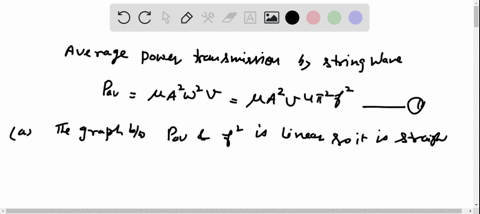 Average power transmission by string wave
Pav = μA²ω²v = μA²v4π²f² —— ①
(a) The graph b/o Pav & f² is linear so it is straigh